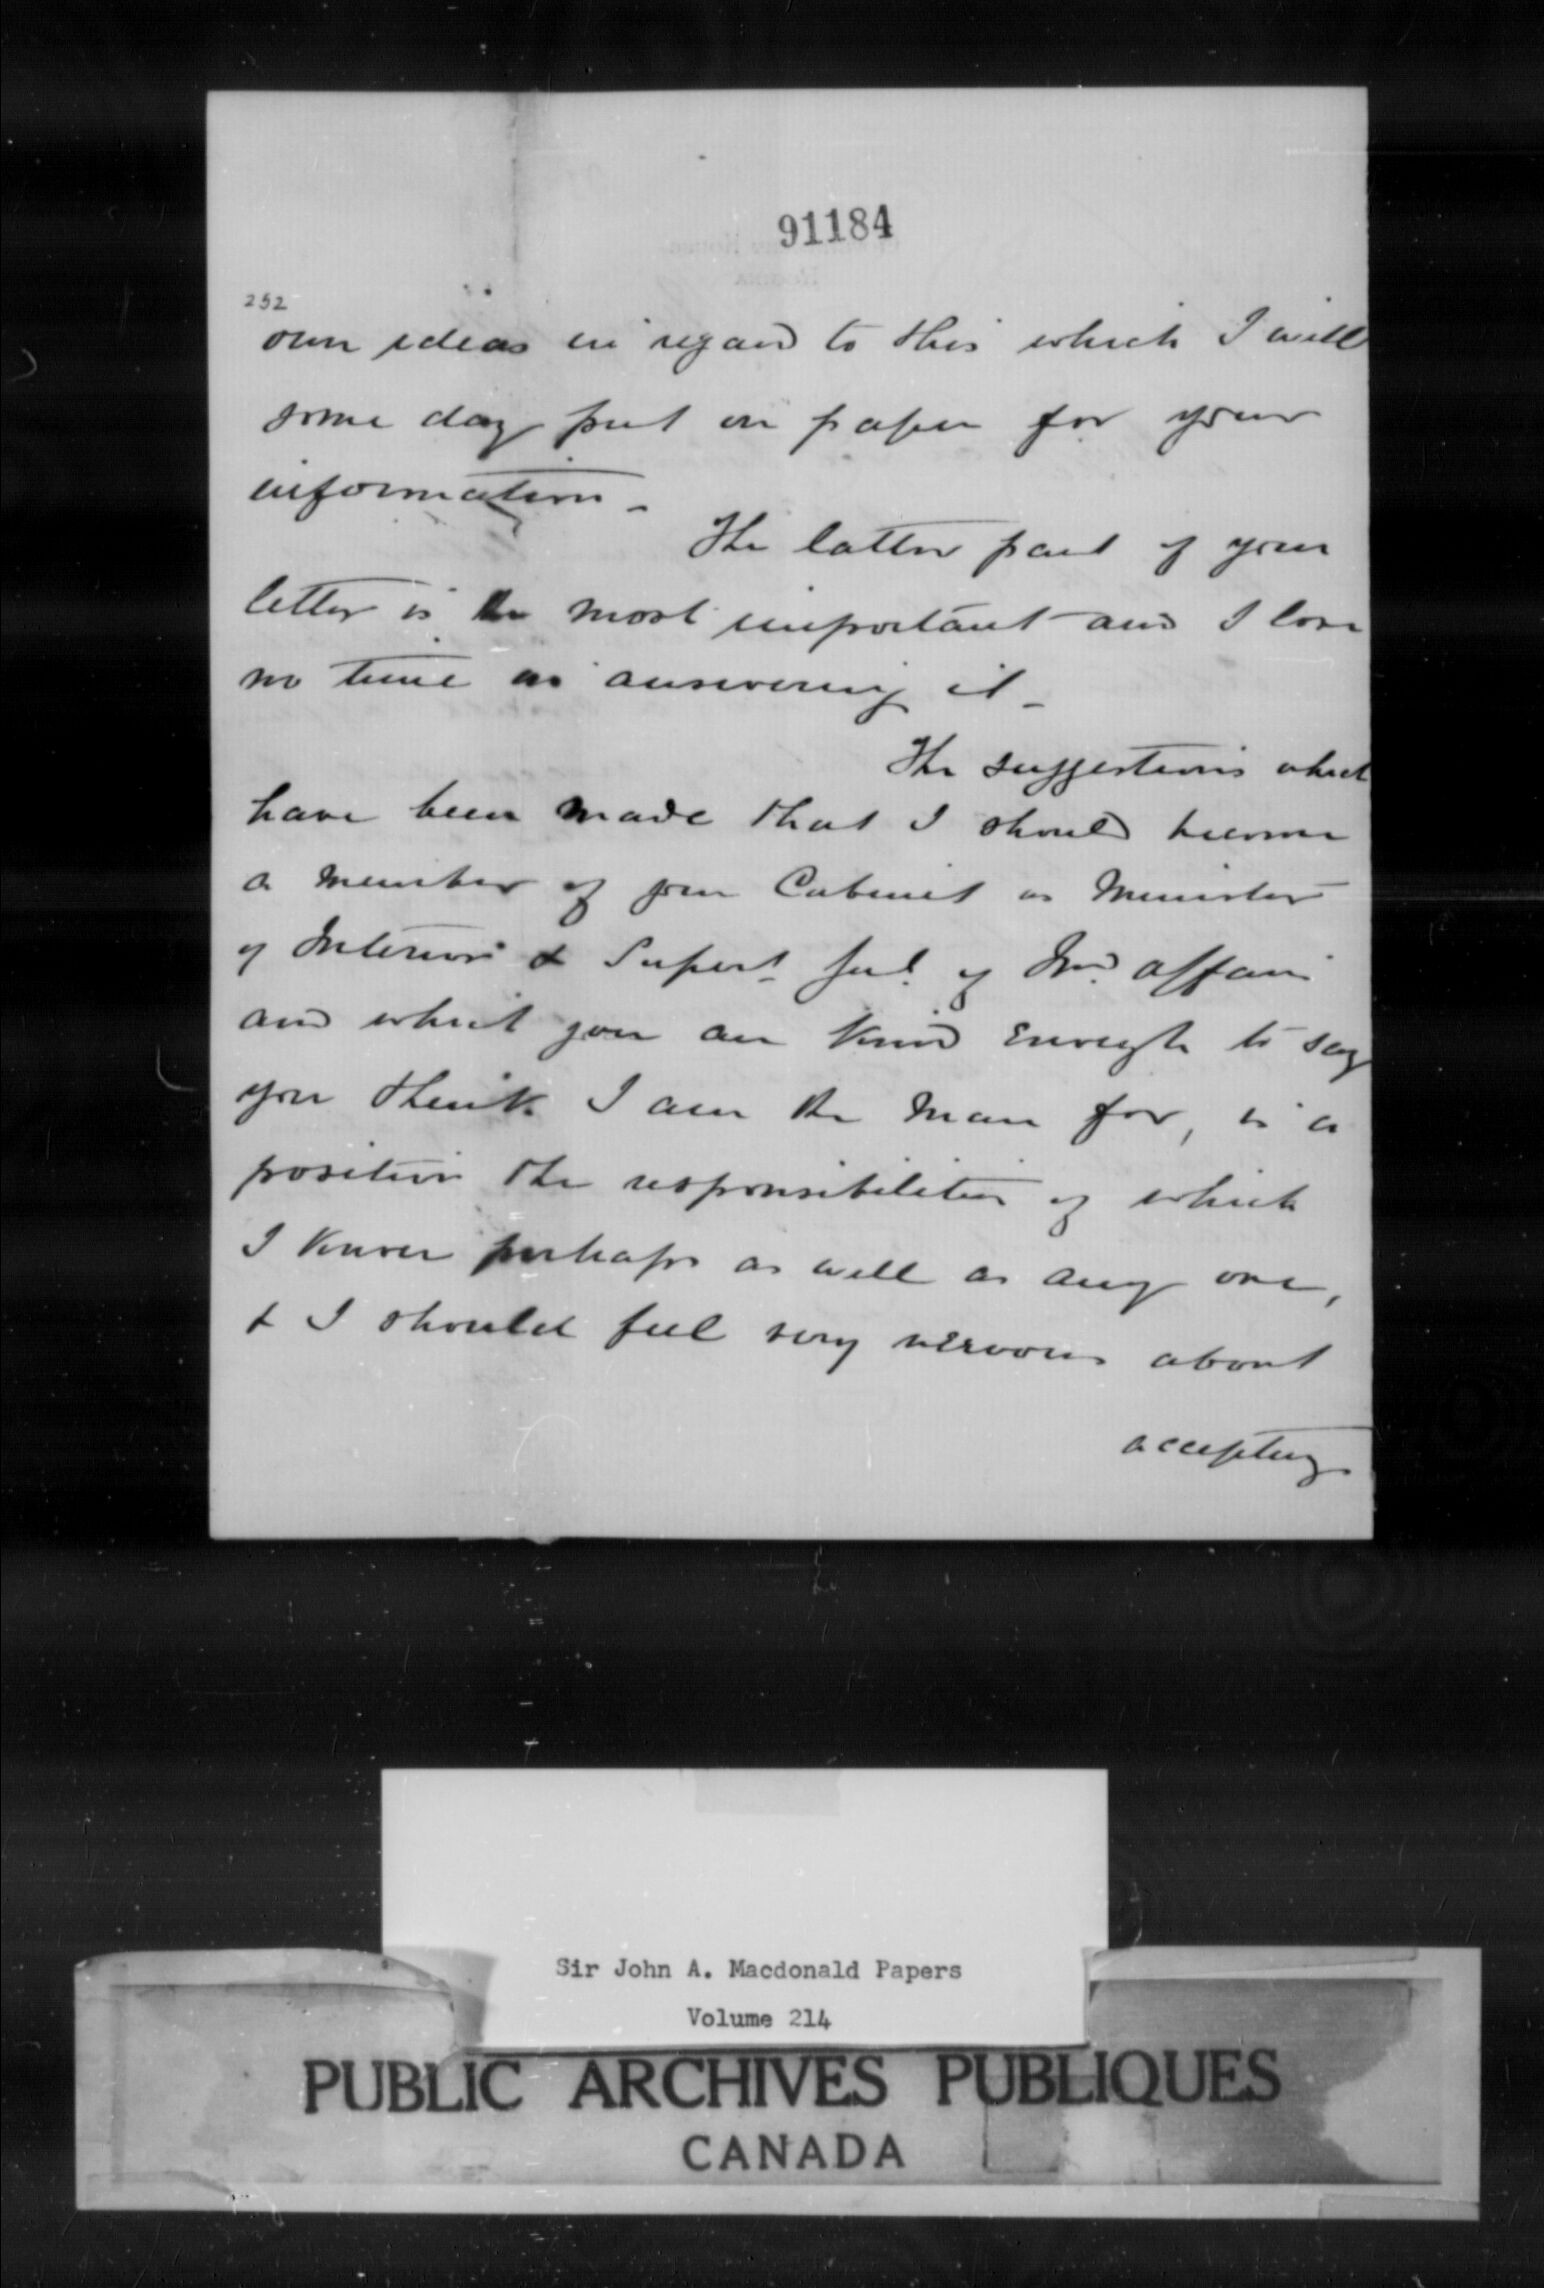 91184
252
own ideas in regard to this which I will
some day put on paper for your
information _
The latter part of your
letter is the most important and I lose
no time in answering it _
The suggestions which
have been made that I should become
a member of your Cabinet as Minister
of Interior & Supert Genl. of Ind. affairs
and which you are kind enough to say
you think I am the man for, is a
position the responsibilities of which
I know perhaps as well as any one,
& I should feel very nervous about
accepting
Sir John A. Macdonald Papers
Volume 214
PUBLIC ARCHIVES PUBLIQUES
CANADA